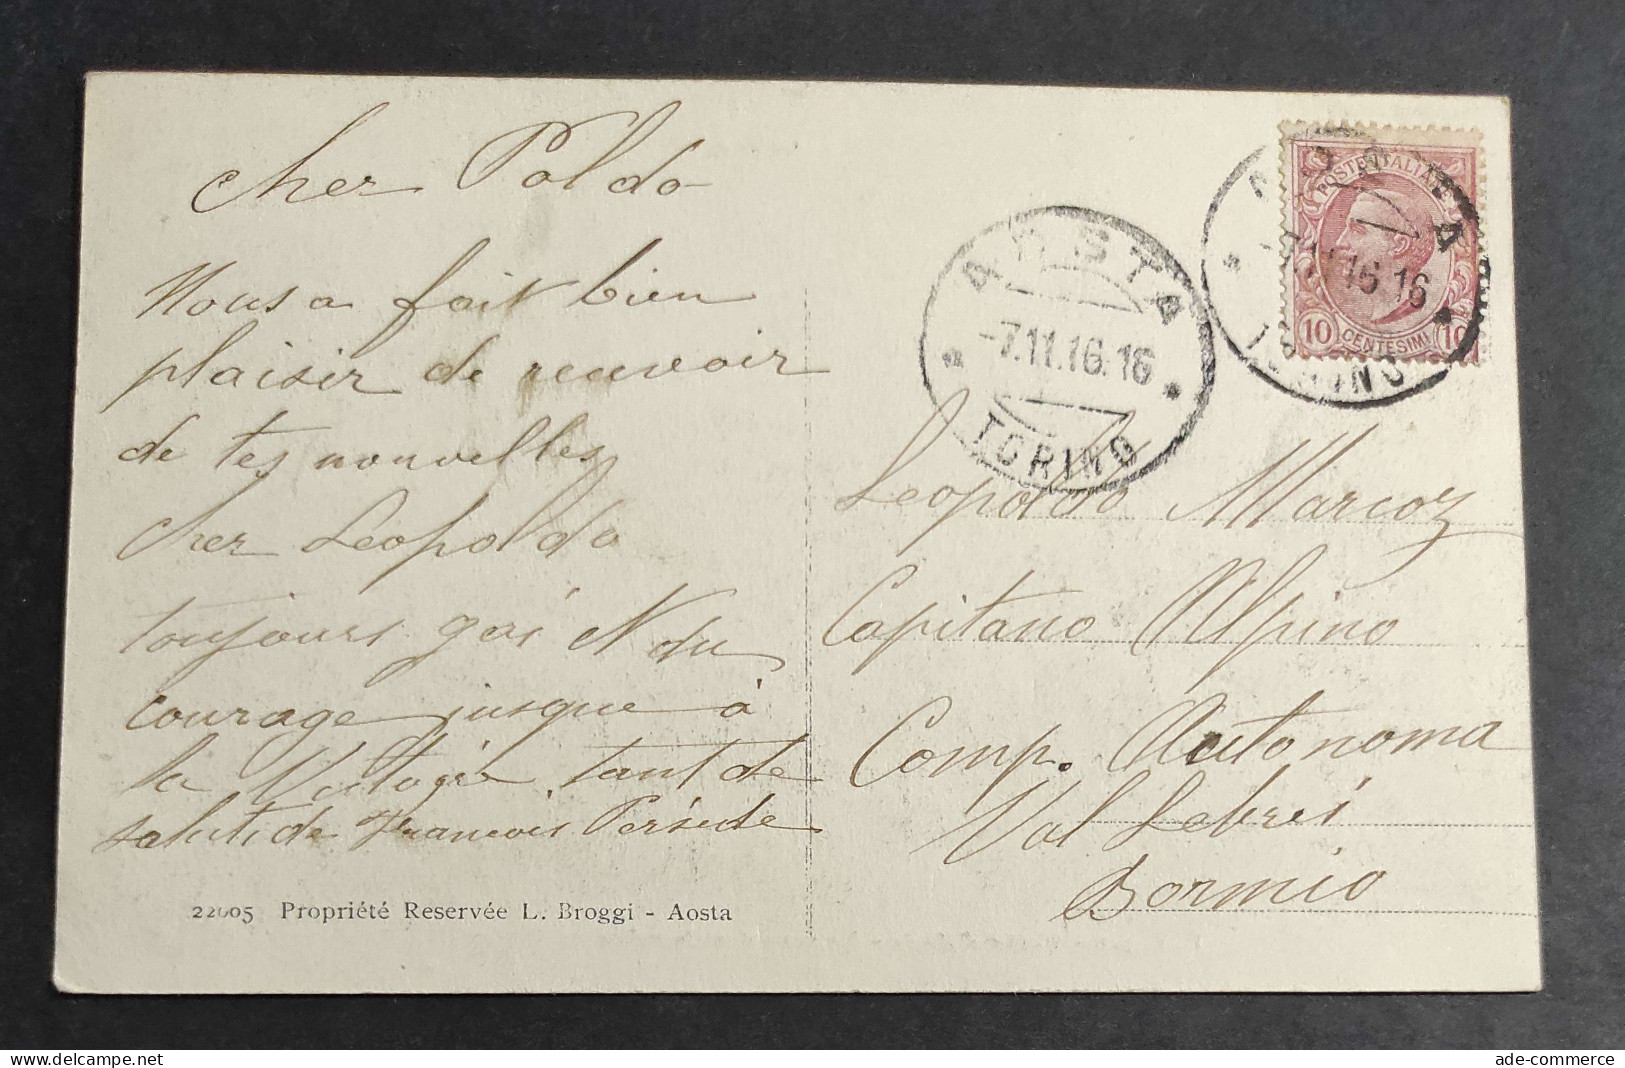 cher Poldo
Nous a fait bien
plaisir de recevoir
de tes nouvelles
cher Léopoldo
toujours gai et du
courage jusque à
la Victoire tant de
saluts de François Perside
22605 Propriété Reservée L. Broggi - Aosta
AOSTA
-7.11.16.16
TORINO
POSTE ITALIANE
10 CENTESIMI 10
AOSTA
16.16
TORINO
Leopoldo Marcoz
Capitano Alpino
Comp. Autonoma
Val Lebrei
Bormio
ade-commerce